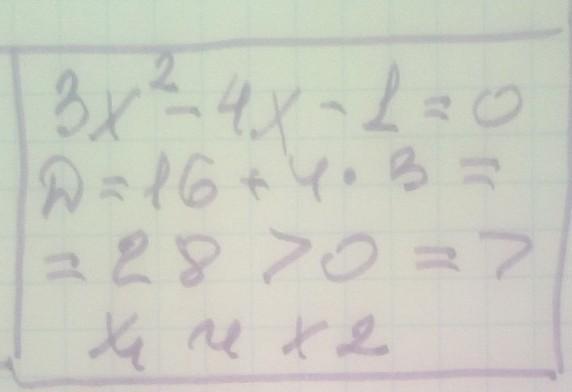 3x² - 4x - 1 = 0
D = 16 + 4 · 3 =
= 28 > 0 = >
x₁ и x2